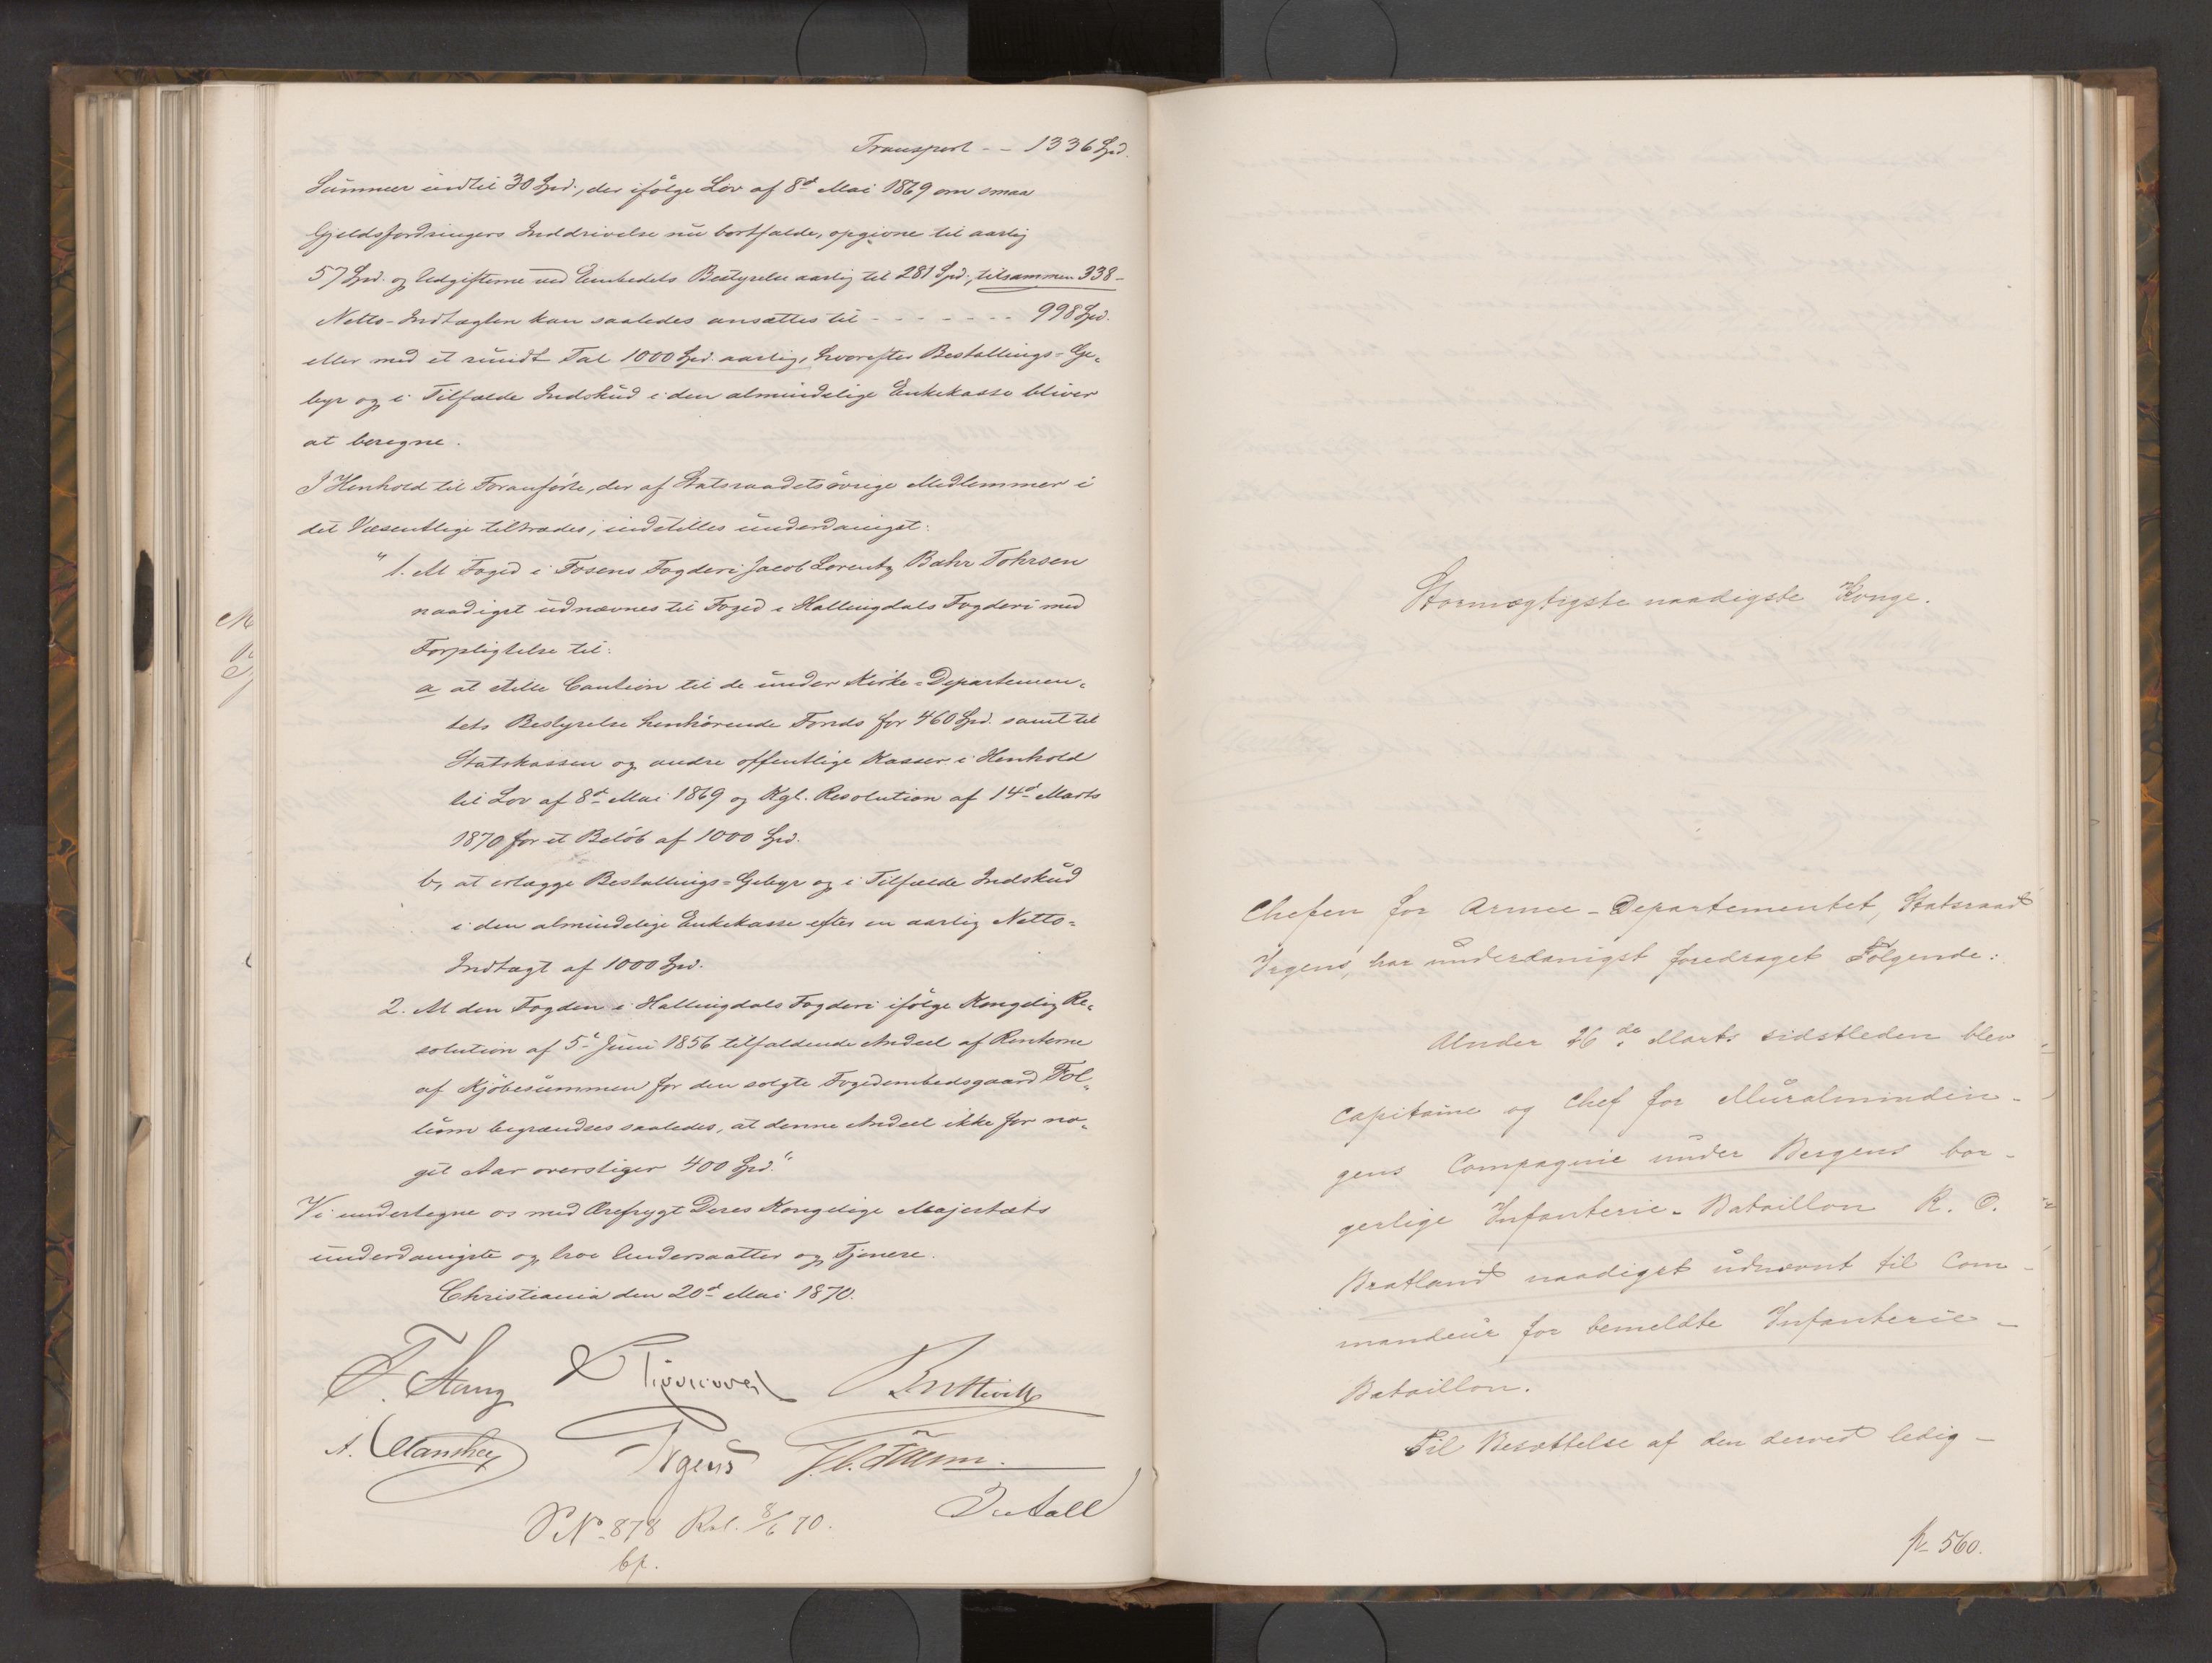 Transport - - 1336 Spd.
Summer indtil 30 Spd., der ifölge Lov af 8d Mai 1869 om smaa
Gjeldsfordringers Inddrivelse nu bortfalde, opgivne til aarlig
57 Spd. og Udgifterne ved Embedets Bestyrelse aarlig til 281 Spd., tilsammen 338 -
Netto-Indtægten kan saaledes ansættes til - - - - - - - 998 Spd.
eller med et rundt Tal 1000 Spd. aarlig, hvorefter Bestallings-Ge-
byr og i Tilfælde Indskud i den almindelige Enkekasse bliver
at beregne.
I Henhold til Foranförte, der af Statsraadets övrige Medlemmer i
det Væsentlige tiltrædes, indstilles underdanigst:
"1. At Foged i Fosens Fogderi Jacob Lorentz Bahr Tohrsen
naadigst udnævnes til Foged i Hallingdals Fogderi med
Forpligtelse til:
a at stille Caution til de under Kirke-Departemen-
tets Bestyrelse henhörende Fonds for 460 Spd. samt til
Statskassen og andre offentlige Kasser i Henhold
til Lov af 8d Mai 1869 og Kgl. Resolution af 14d Marts
1870 for et Belöb af 1000 Spd.
b, at erlægge Bestallings-Gebyr og i Tilfælde Indskud
i den almindelige Enkekasse efter en aarlig Netto-
Indtægt af 1000 Spd.
2. At den Fogden i Hallingdals Fogderi ifölge Kongelig Re-
solution af 5d Juni 1856 tilfaldende Andeel af Renterne
af Kjöbesummen for den solgte Fogedembedsgaard Fol-
lum begrændses saaledes, at denne Andeel ikke for no-
get Aar overstiger 400 Spd."
Vi undertegne os med Ærefrygt Deres Kongelige Majestæts
underdanigste og troe Undersaatter og Tjenere.
Christiania den 20d Mai 1870.
F. Stang
A. Manthey Irgens
Aall
P N 878 Rel. 8/6 70.
bf.
Stormægtigste naadigste Konge.
Chefen for Armee-Departementet, Statsraad
Irgens, har underdanigst foredraget Fölgende:
Under 26de Marts sidstleden blev
Capitaine og Chef for Muralmindin-
gens Compagnie under Bergens bor-
gerlige Infanterie-Bataillon R. O.
Bratland naadigst udnævnt til Com-
mandeur for bemeldte Infanterie-
Bataillon.
Til Besættelse af den derved ledig-
p 560.